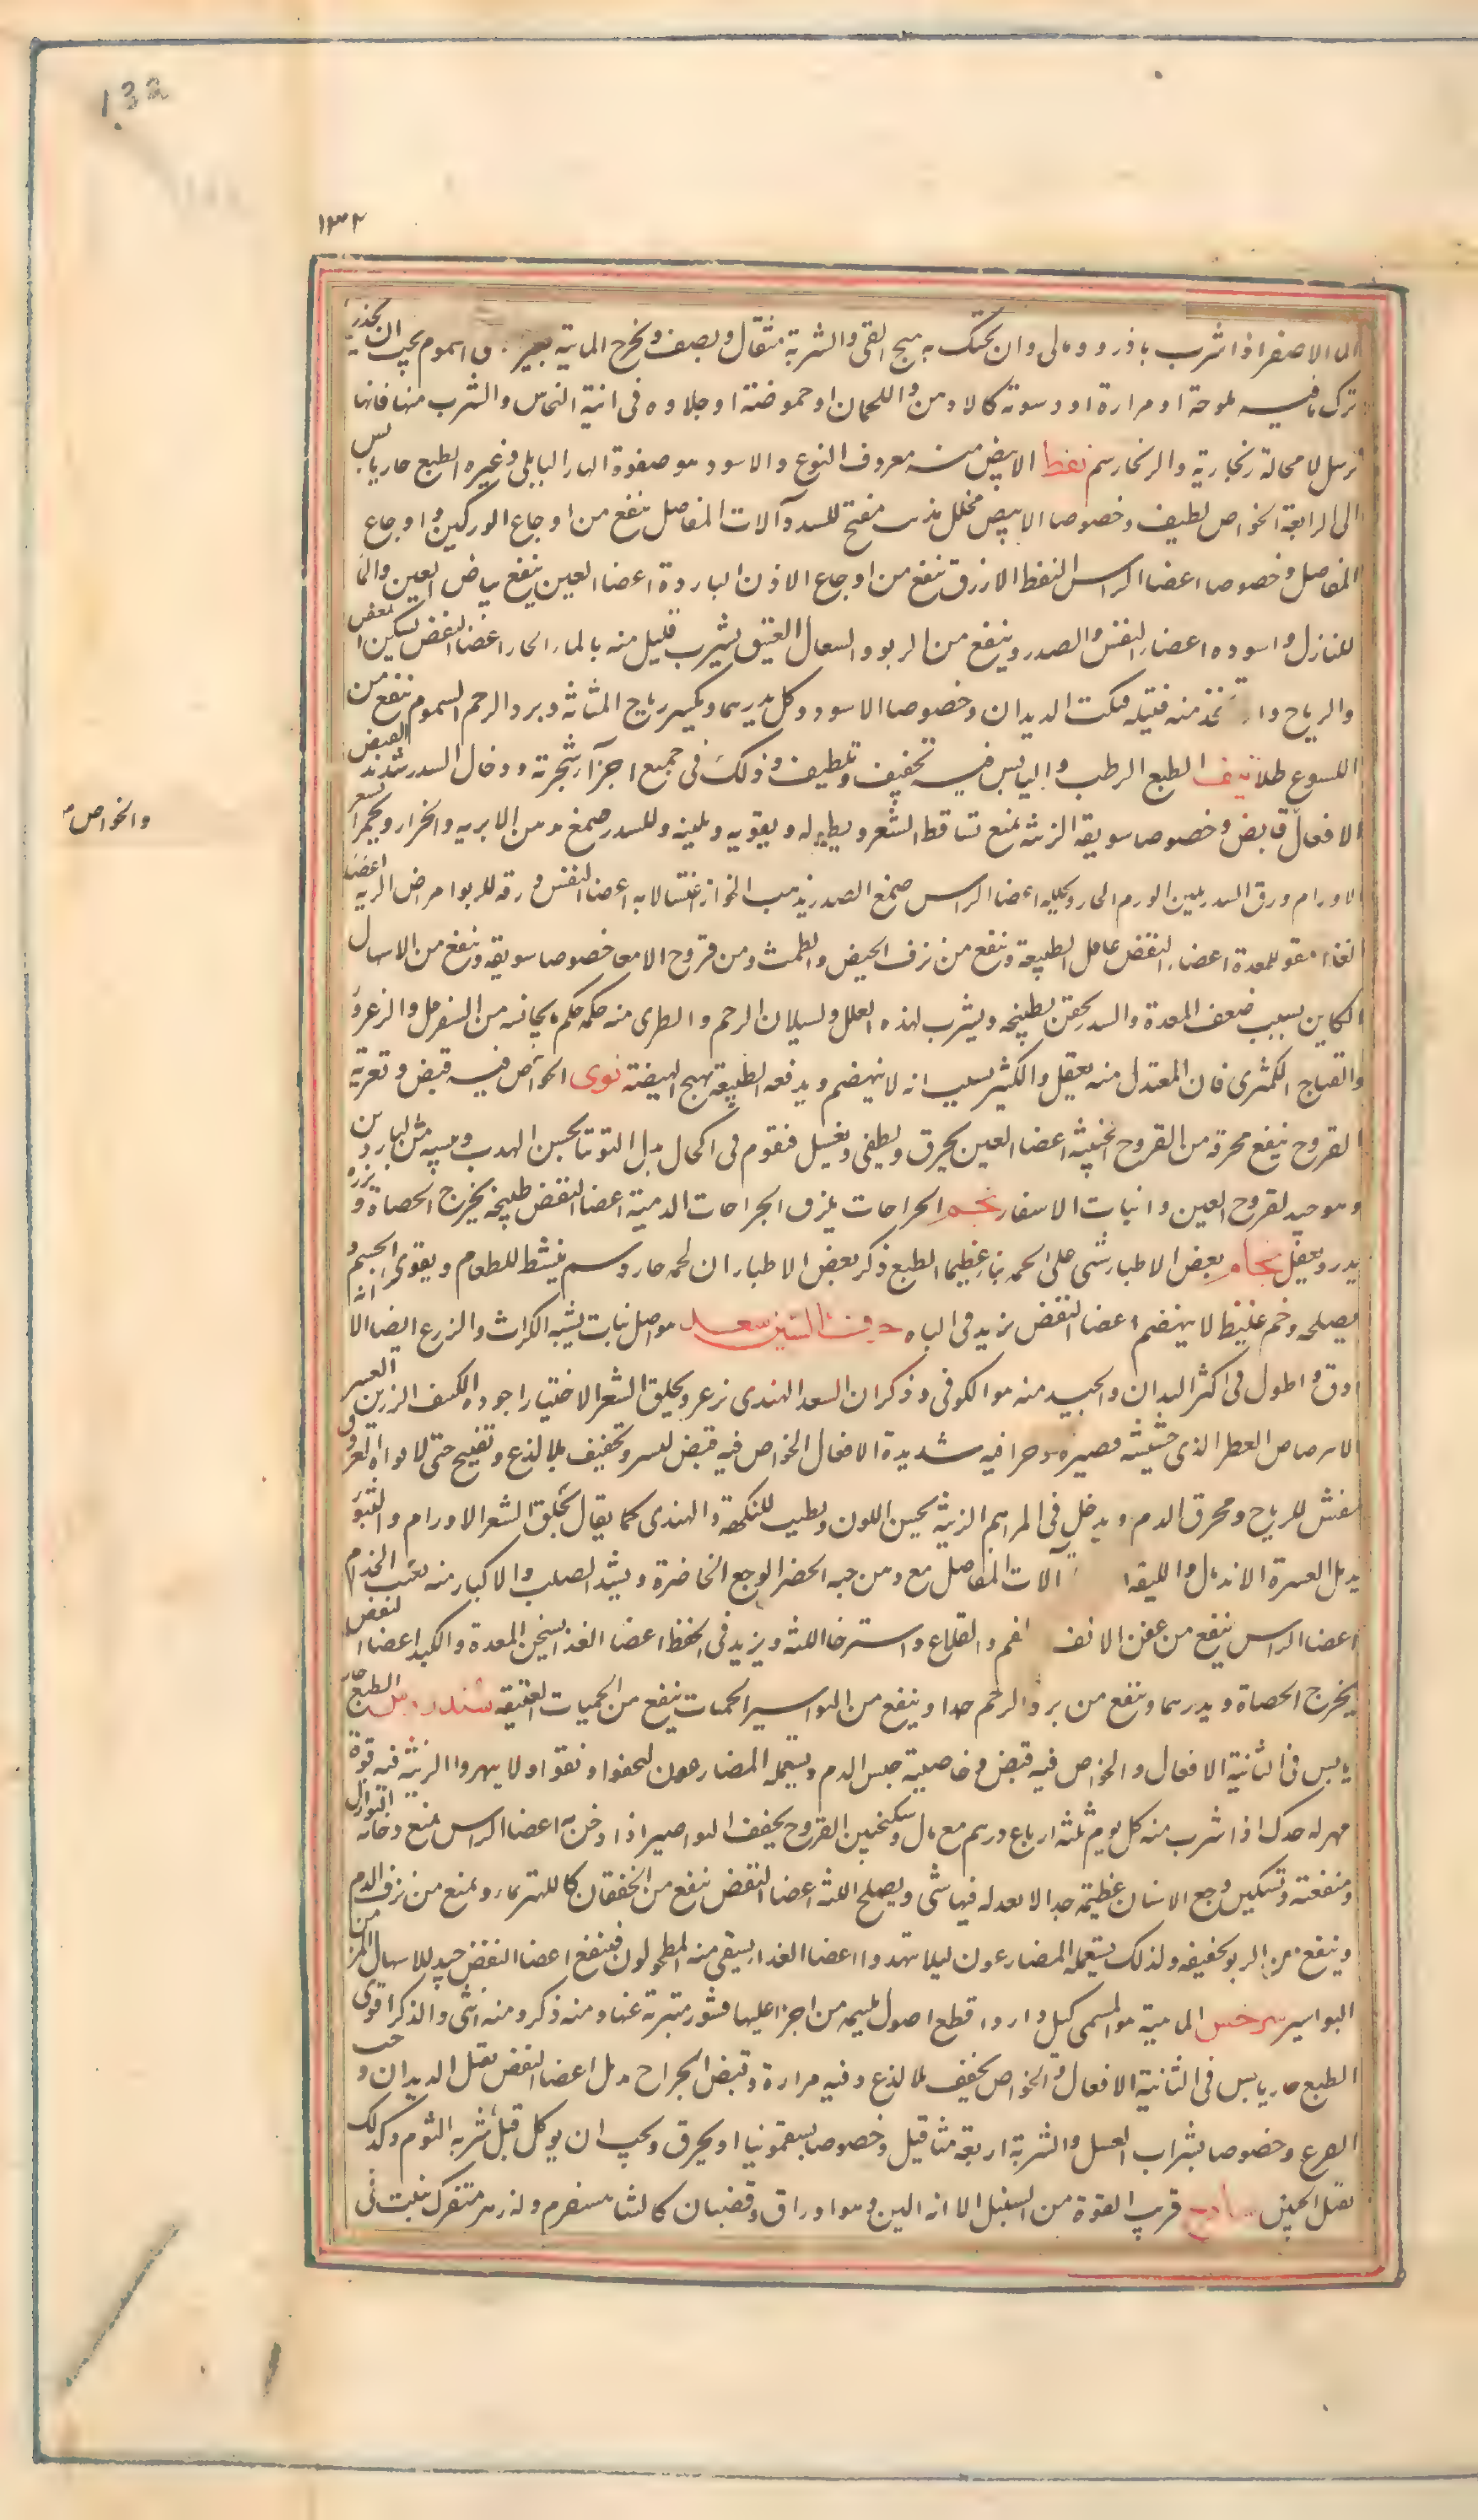 132
١٣٢
الماء الاصفر اذا شرب بادرومالى وان تحنك به هيج القى والشربة مثقال ونصف ويخرج المائية بغير السموم يجب ان يحذر
ترك ما فيه ملوحة او مرارة او دسوتة كالادهن واللحمان او حموضة او حلاوه فى انية النحاس والشرب منها فانها
ترسل لا محالة زنجارية والزنجار سم نفط الابيض منه معروف النوع والاسود هو صفوة القار البابلى وغيره الطبع حار يابس
الى الرابعة الخواص لطيف وخصوصا الابيض محلل مذيب مفتح للسدد آلات المفاصل ينفع من اوجاع الوركين واوجاع
المفاصل وخصوصا اعضا الراس النفط الازرق ينفع من اوجاع الاذن الباردة اعضا العين ينفع بياض العين والماء
للنازل واسوده اعضاء النفس والصدر وينفع من الربو والسعال العتيق يشرب قليل منه بالماء الحار اعضا النفض تسكين المغص
والرياح واتخذ منه فتيلة قتلت الديدان وخصوصا الاسود وكل يدرهما ويكسر رياح المثانة وبرد الرحم السموم ينفع من
اللسوع طلا نبق الطبع الرطب واليابس فيه تجفيف وتلطيف وذلك فى جميع اجزآء شجرته ودخان السدر شديد القبض
والخواص
الافعال قابض وخصوصا سويقه الزينة يمنع تساقط الشعر ويطوله ويقويه ويلينه وللسدر صمغ يذهب الابريه والخراز ويحمر الشعر
الاورام ورق السدر يلين الورم الحار ويحلله اعضا الراس صمغ الصدر يذهب الخراز اغتسالا به اعضا النفس ورقه للربو امراض الريه اعضا
الغذاء مقو للمعدة اعضاء النفض عاقل للطبيعة وينفع من نزف الحيض والطمث ومن قروح الامعا خصوصا سويقه وينفع من الاسهال
الكاين بسبب ضعف المعدة والسدر يحقن بطبيخه ويشرب لهذه العلل ولسيلان الرحم والطرى منه حكمه حكم ما يجانسه من السفرجل والزعرور
والتفاح الكمثرى فان المعتدل منه يعقل والكثير يسبب انه لا ينهضم ويدفعه الطبيعة يهيج الهيضة نوى الخواص فيه قبض وتغرية
القروح ينفع محرقه من القروح الخبيثة اعضا العين يحرق ويطفى ويغسل فيقوم فى اكحال بدل التوتيا يحسن الهدب
وهو جيد لقروح العين وانبات الاشفار نجم الجراحات يلزق الجراحات الدمية اعضا النفض طبيخه يخرج الحصاة و بزره
يدر ويعقل نحام بعض الاطباء شى على الحمه نار عظيما الطبع ذكر بعض الاطباء ان لحمه حار دسم ينشط للطعام ويقوى الجسم و انه
يصلحه وخم غليظ لا ينهضم اعضا النفض يزيد فى الباه حرف السين سعد هو اصل نبات يشبه الكراث والزرع ايضا الا
ادق واطول فى اكثر البلدان والجيد منه هو الكوفى وذكر ان السعد الهندى زعر ويحلق الشعر الاختيار اجوده الكثيف الرزين العسر
الارضاض العطر الذى خشبته قصيره وحرافيه شديدة الافعال الخواص فيه قبض يسير وتجفيف بلا لذع وتفتيح حتى لافواه العروق
مفش للرياح ومحرق الدم ويدخل فى المراهم الزينة يحسن اللون ويطيب للنكهة والهندى كما يقال يحلق الشعر الاورام والبثور
يدمل العسرة الاندمال آلات المفاصل مع دهن حبه الخضرا لوجع الخاصرة ويشد الصلب والاكبار منه يعقب الجذام
اعضا الراس ينفع من عفن الانف الفم والقلاع واسترخا اللثه ويزيد فى الحفظ اعضا الغذا يسخن المعدة والكبد اعضاا لنفض
يخرج الحصاة ويدرهما وينفع من برد الرحم جدا وينفع من البواسير الحميات ينفع من الحميات العتيقة سندروس الطبع حار
يابس فى الثانية الافعال والخواص فيه قبض وخاصيته حبس الدم ويستعمله المضارعون ليخفوا ونقوا ولا يهروا الزينة فيه قوة
مهرله حدا اذا شرب منه كل يوم ثلثه ارباع درهم مع ماء وسكنجبين القروح يجفف البواصير اذا دخن به اعضا الراس يمنع دخانه النوازل
ومنفعته وتسكين وجع الاسنان عظيمة جدا لا يعدله فيها شى ويصلح اللثه اعضا النفض ينفع من الخفقان كالكهرباء ويمنع من نزف الدم
وينفع من الربو تخفيفه ولذلك يستعمله المضارعون ليلا اعضا الغذا يسقى منه المطحولون فينفع اعضا النفض جيد للاسهال المزمن
البواسير سرخس الماهية هو المسمى كيل دارو قطع اصول منه ذكر ومنه انثى والذكر اقوى
الطبع حار يابس فى الثانية الافعال والخواص تجفيف بلا لذع وفيه مرارة وقبض الجراح يدمل اعضا النفض يقتل الديدان و حب
القرع وخصوصا بشراب العسل والشربة اربعة مثاقيل وخصوصا بسقمونيا او يحرق ويجب ان يوكل قبل شربه الثوم وكذلك
يقتل الجنين ساذج قريب القوة من السنبل الا انه الين وهو اوراق وقضبان ينبت فى